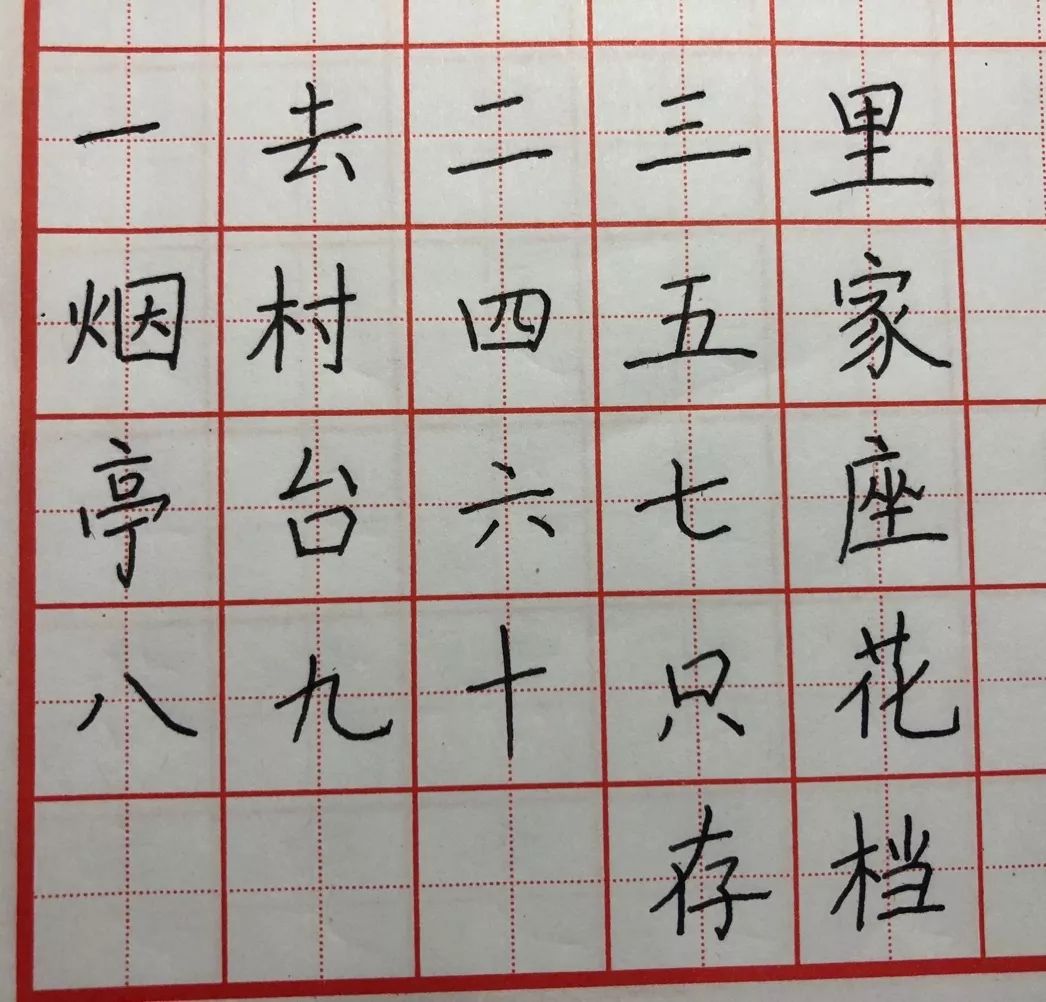 一去二三里
烟村四五家
亭台六七座
八九十只花
存档